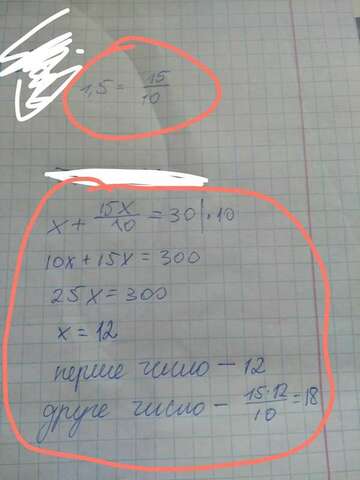 1,5 = 15/10
x + 15x/10 = 30 |·10
10x + 15x = 300
25x = 300
x = 12
перше число – 12
друге число – 15·12/10 = 18